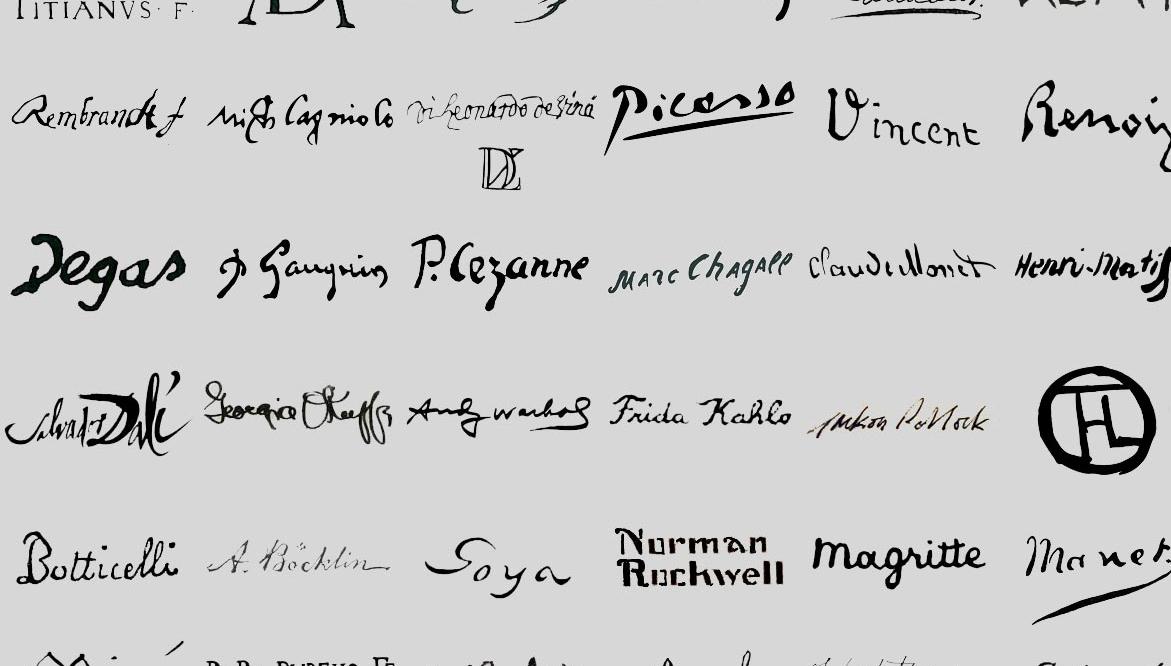 TITIANVS · F ·
Rembrandt f
Michelagniolo
Picasso
Vincent
Renoir
Degas
P Gauguin
P. Cezanne
MARC ChAgAll
Claude Monet
Henri-Matiss
Salvador Dalí
Georgia OKeeffe
Andy Warhol
Frida Kahlo
Jackson Pollock
HTL
Botticelli
A. Böcklin
Goya
Norman
Rockwell
magritte
Manet.